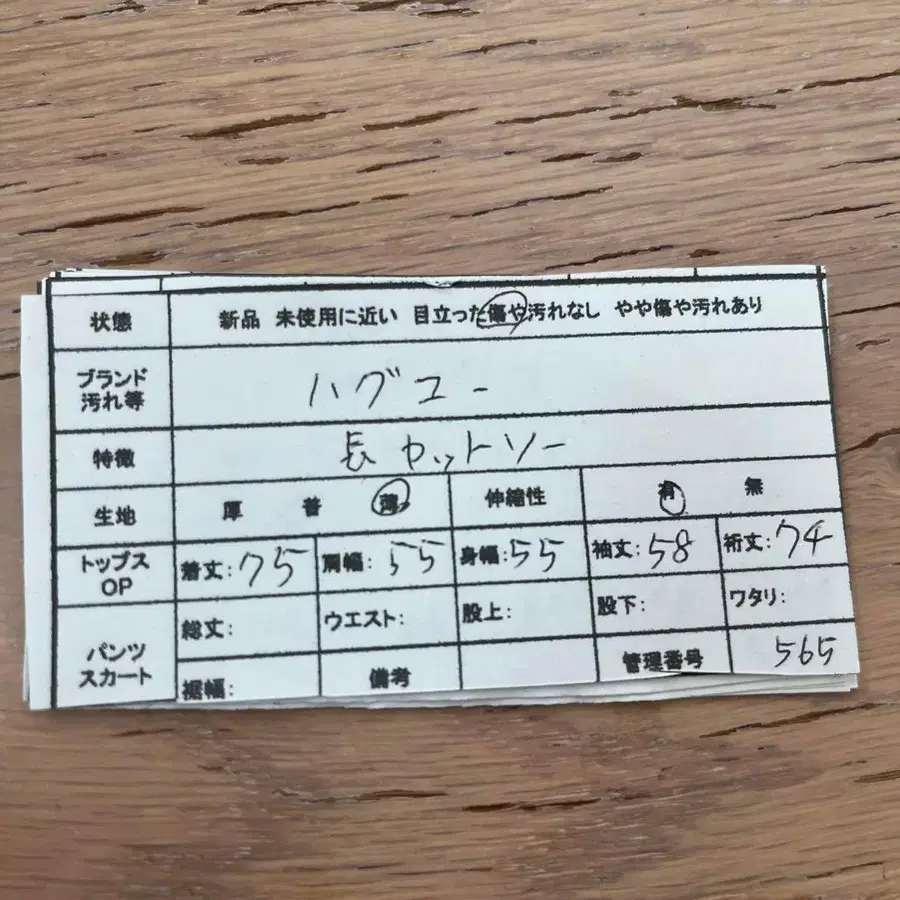 状態 新品 未使用に近い 目立った傷や汚れなし やや傷や汚れあり
ブランド
汚れ等 ハグユー
特徴 長カットソー
生地 厚 普 薄 伸縮性 有 無
トップス
OP 着丈:75 肩幅:55 身幅:55 袖丈:58 裄丈:74
パンツ
スカート 総丈: ウエスト: 股上: 股下: ワタリ:
裾幅: 備考 管理番号 565